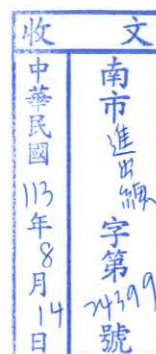 收文
南市進出織字第24399號
中華民國113年8月14日